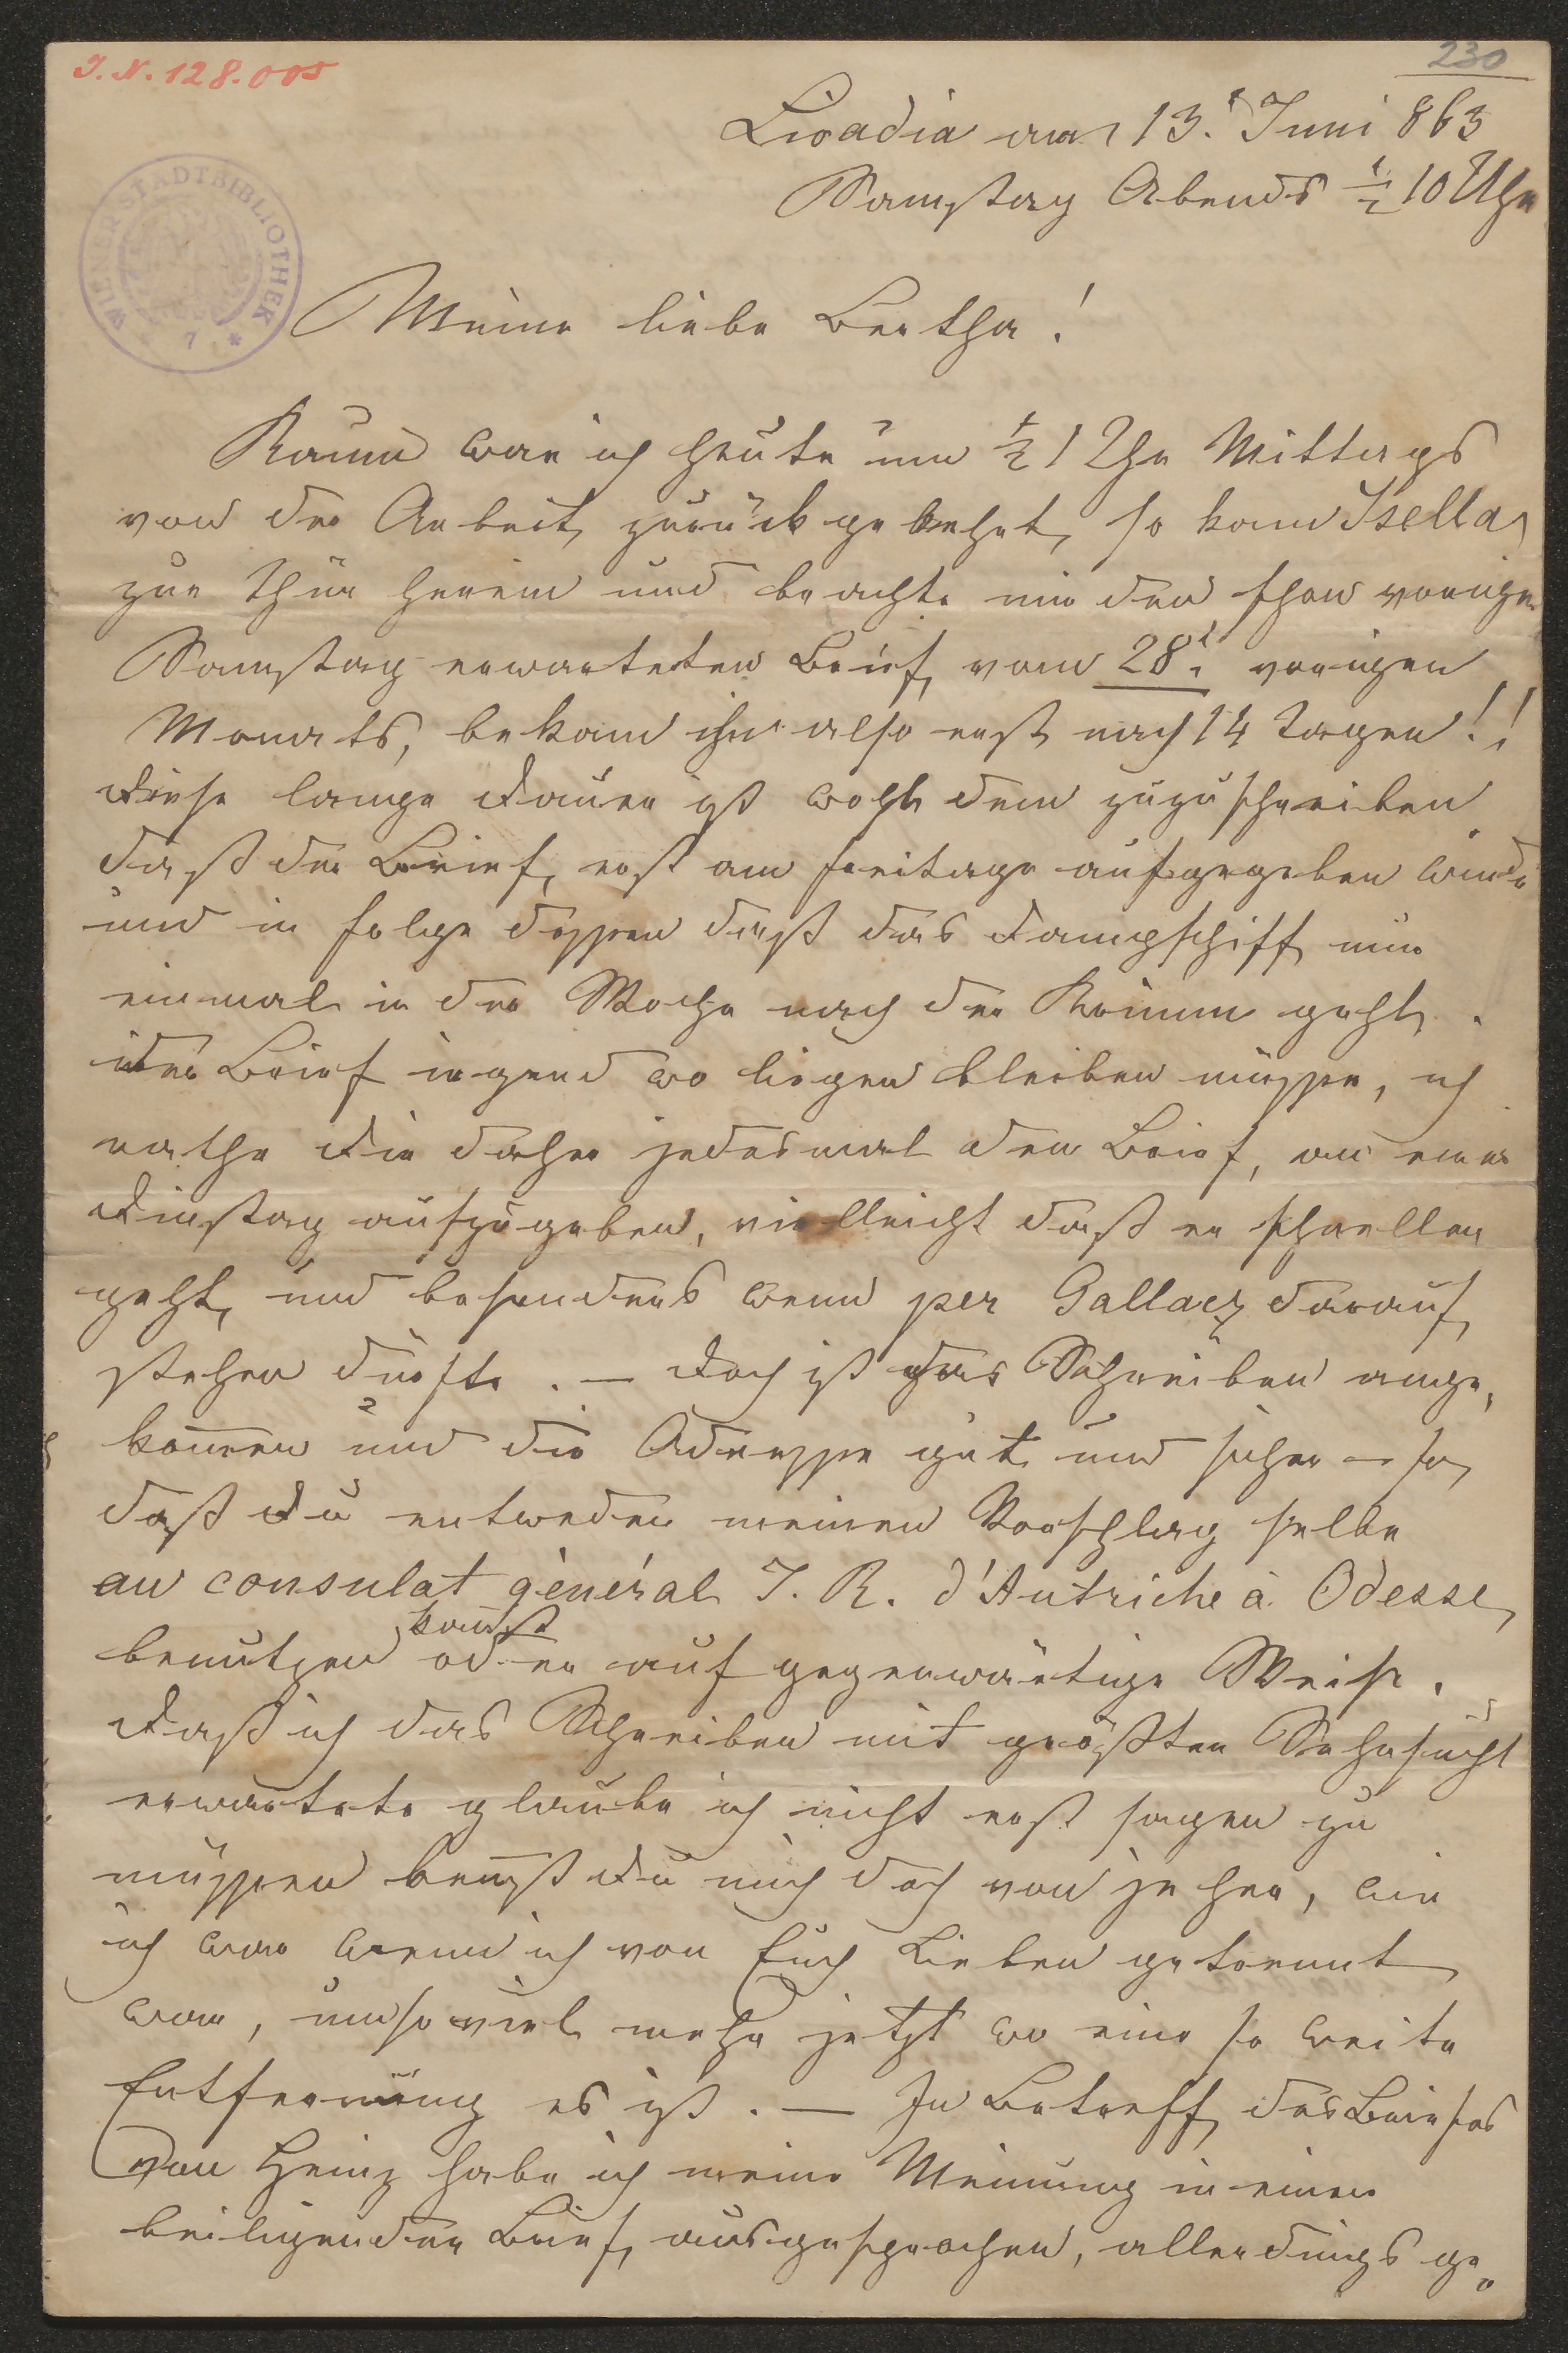 J. N. 128.005
230
WIENER STADTBIBLIOTHEK
7 *
Livadia am 13.t Juni 863
Samstag Abends ½ 10 Uhr
Meine liebe Bertha!
Kaum war ich heute um ½ 1 Uhr Mittags
von der Arbeit zurückgekehrt, so kam Isella
zur Thür herein und brachte mir den schon vorigen
Samstag erwarteten Brief, vom 28t vorigen
Monats, bekam ihn also erst nach 14 Tagen!!
Diese lange Dauer ist wohl dem zuzuschreiben
daß der Brief, erst am Freitage aufgegeben wurde
und in Folge dessen daß das Dampfschiff nur
einmal in der Woche nach der Krimm geht.
der Brief irgend wo liegen bleiben müsse, ich
rathe Dir daher jedesmal den Brief, an einen
Dinstag aufzugeben, vielleicht daß er schneller
geht, und besonders wenn per Gallacz darauf
stehen dürfte. — Doch ist das Schreiben ange,
kommen und die Adresse gut und sicher – so
daß Du entweder meinen Vorschlag selbe
au consulat général J. R. d'Autriche à Odesse
kannst
benutzen oder auf gegenwärtige Weise.
Daß ich das Schreiben mit größter Sehnsucht
erwartete glaube ich nicht erst sagen zu
müssen kennst Du mich doch von je her, wie
ich war wenn ich von Euch Lieben getrennt
war, umso viel mehr jetzt wo eine so weite
Entfernung es ist. — In Betreff des Briefes
von Heinz habe ich meine Meinung in einem
beiligenden Brief, ausgesprochen, allerdings ge„